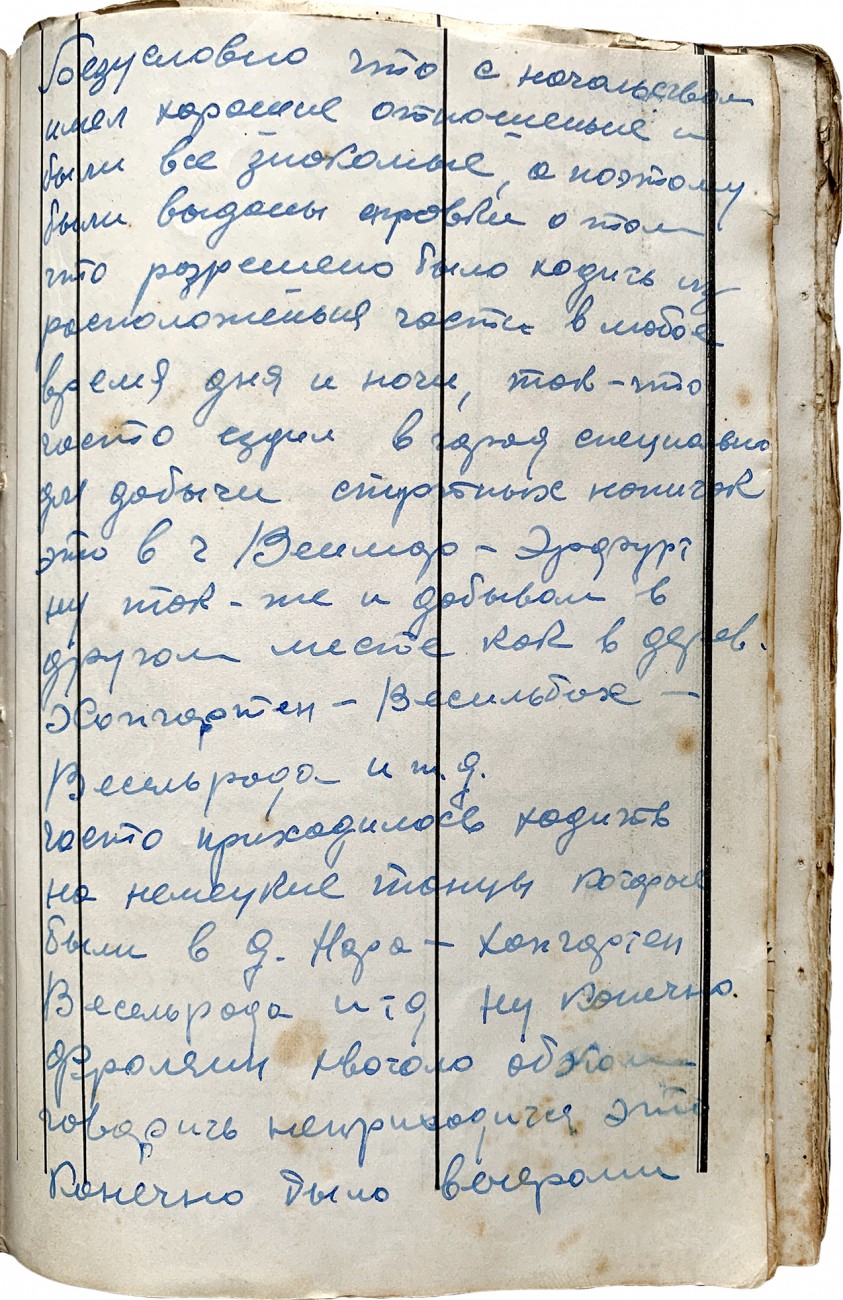 Безусловно что с начальством
имел хорошие отношенье и
были все знакомые, а поэтому
были выданы справки о том
что разрешено было ходить из
расположенья части в любое
время дня и ночи, так-что
часто ездил в город специально
для добычи спиртных напиток
это в г Веймар - Эрдфурт
ну так-же и добывал в
другом месте как в дерев.
Хопгартен - Весильбах -
Весельрода и т.д.
часто приходилось ходить
на немецкие танцы которые
были в д. Нора - Хопгартен
Весельрода и тд ну конечно
фролями хватало об
говорить неприходится это
конечно было вечерами